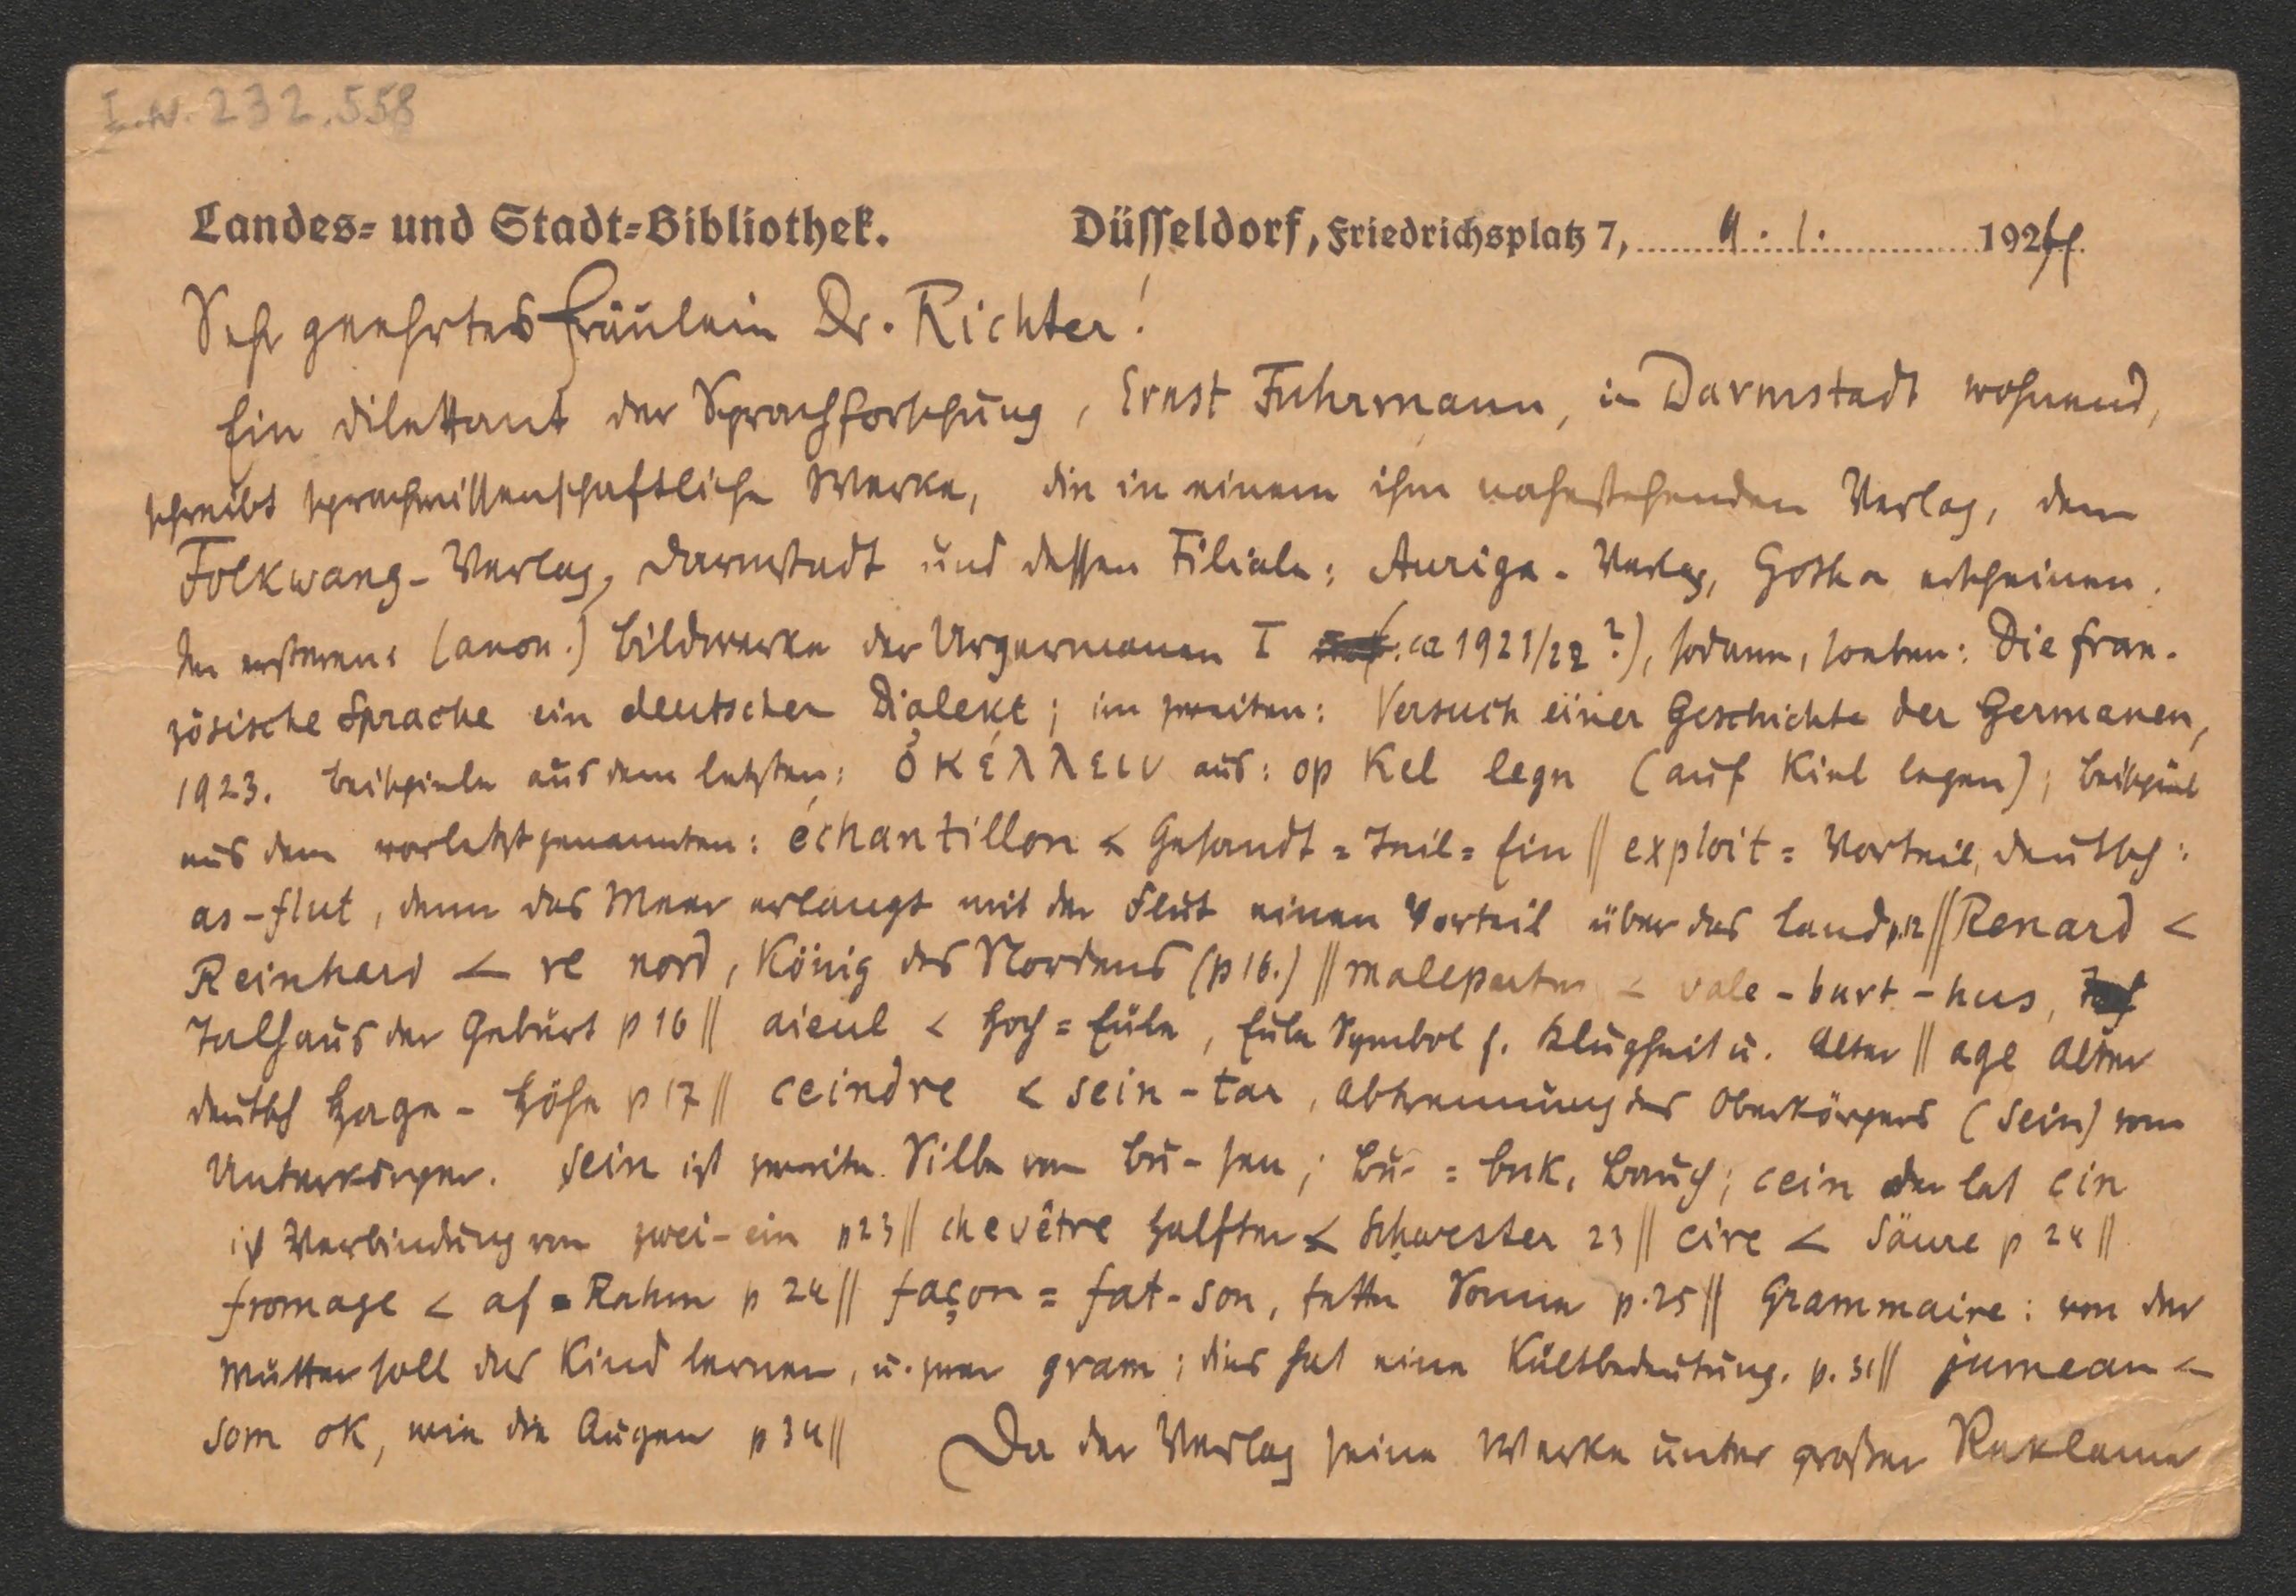 I.N. 232.558
Landes- und Stadt-Bibliothek. Düsseldorf, Friedrichsplatz 7, 9. 1. 1924
Sehr geehrtes Fräulein Dr. Richter!
Ein Dilettant der Sprachforschung, Ernst Fuhrmann, in Darmstadt wohnend,
schreibt sprachwissenschaftliche Werke, die in einem ihm nahestehenden Verlag, dem
Folkwang-Verlag, Darmstadt und dessen Filiale: Auriga-Verlag, Gotha erscheinen.
Im ersteren: (anon.) Bildwerke der Urgermanen I ca 1921/22?), sodann, soeben: Die fran-
zösische Sprache ein deutscher Dialekt; im zweiten: Versuch einer Geschichte der Germanen,
1923. Beispiele aus dem letzten: ὀκέλλειν aus: op Kel legn (auf Kiel legen); Beispiel
aus dem vorletztgenannten: échantillon < Gesandt=Teil=Ein || exploit = Vorteil, deutsch:
as-flut, denn das Meer erlangt mit der Flut einen Vorteil über das Land p.12 || Renard <
Reinhard < re nord, König des Nordens (p 16.) || malepartus < vale-burt-hus,
Talhaus der Geburt p 16 || aieul < Hoch=Eule, Eule Symbol f. Klugheit u. Alter || age Alter
deutsch Hage-Höhe p 17 || ceindre < sein-tar, Abtrennung des Oberkörpers (sein) vom
Unterkörper. sein ist zweite Silbe von Bu-sen; Bu- = buk, Bauch; cein oder lat cin
ist Verbindung von zwei-ein p 23 || chevêtre Halfter < Schwester 23 || cire < Säure p 24 ||
fromage < af=Rahm p 24 || façon = fat-son, fette Sonne p. 25 || Grammaire: von der
Mutter soll das Kind lernen, u. zwar gram; dies hat eine Kultbedeutung. p. 31 || jumeau <
som ok, wie die Augen p 34 || Da der Verlag seine Werke unter großer Reklame